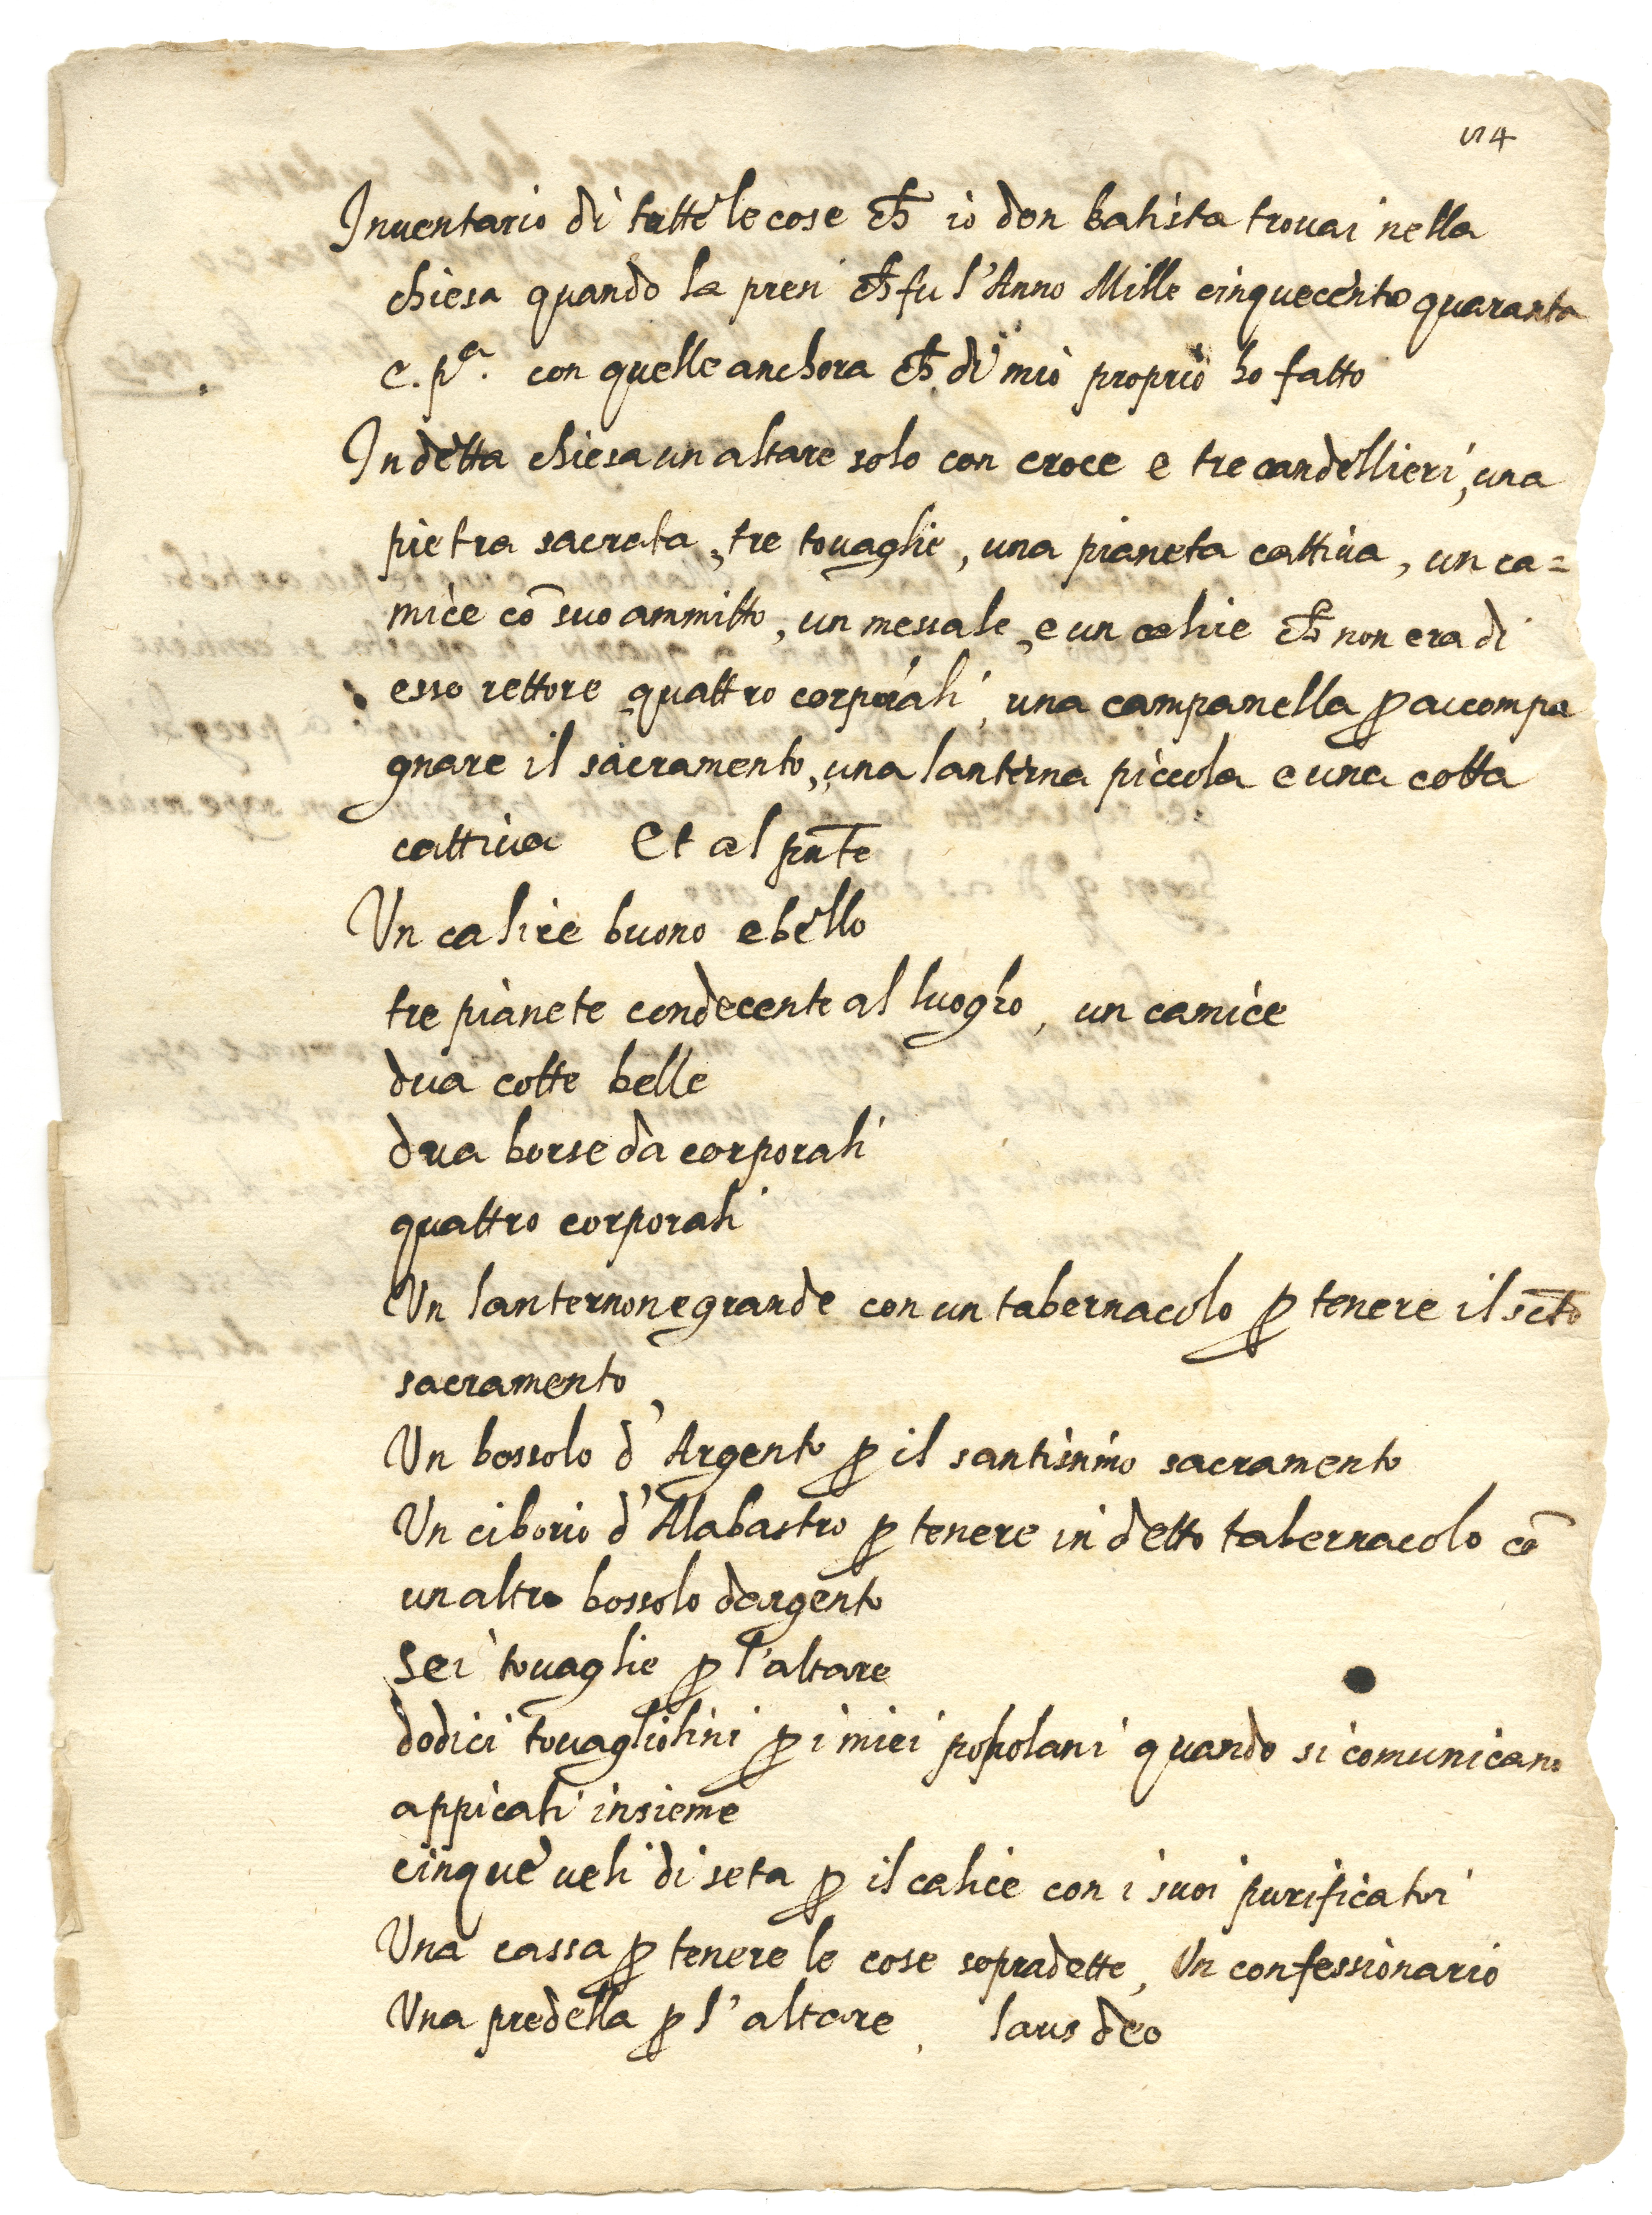 114
Inuentario di tutte le cose ch̄ io don batista trouai nella
chiesa quando la presi ch̄ fu l'Anno Mille cinquecento quaranta
e. pª. con quelle anchora ch̄ di mio proprio ho fatto
In detta chiesa un altare solo con croce e tre candellieri, una
pietra sacrata, tre touaglie, una pianeta cattiua, un ca=
mice cō suo ammitto, un messale, e un calice ch̄ non era di
esso rettore quattro corporali, una campanella ꝑ accompa
gnare il sacramento, una lanterna piccola e una cotta
cattiua Et al pn̄te
Un calice buono e bello
tre pianete condecente al luogho, un camice
dua cotte belle
dua borse da corporali
quattro corporali
Un lanternone grande con un tabernacolo ꝑ tenere il sc̄to
sacramento
Un bossolo d'Argento ꝑ il santissimo sacramento
Un ciborio d'Alabastro ꝑ tenere in detto tabernacolo cō
un altro bossolo dargento
sei touaglie ꝑ l'altare
dodici touagliolini ꝑ i miei popolani quando si comunicano
appicati insieme
cinque ueli di seta ꝑ il calice con i suoi purificatoi
Una cassa ꝑ tenere le cose sopradette, Un confessionario
Una predella ꝑ l'altare, laus deo